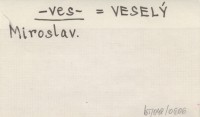 -ves- = VESELÝ
Miroslav.